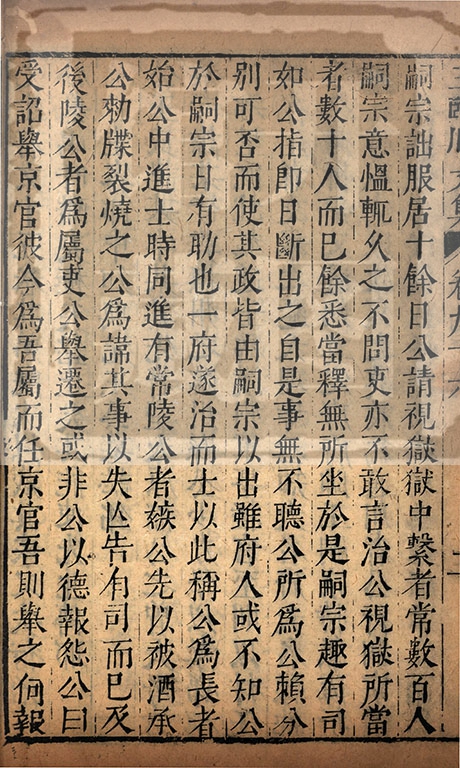 嗣宗詘服居十餘日公請視獄獄中繫者常數百人
嗣宗意慍輒久之不問吏亦不敢言治公視獄所當
者數十人而已餘悉當釋無所坐於是嗣宗趣有司
如公指即日斷出之自是事無不聽公所爲公賴分
別可否而使其政皆由嗣宗以出雖府人或不知公
於嗣宗日有助也一府遂治而士以此稱公爲長者
始公中進士時同進有常陵公者嫉公先以被酒承
公勑牒裂燒之公爲諱其事以失亾告有司而已及
後陵公者爲屬吏公舉遷之或非公以德報怨公曰
受詔舉京官彼令爲吾屬而任京官吾則舉之何報